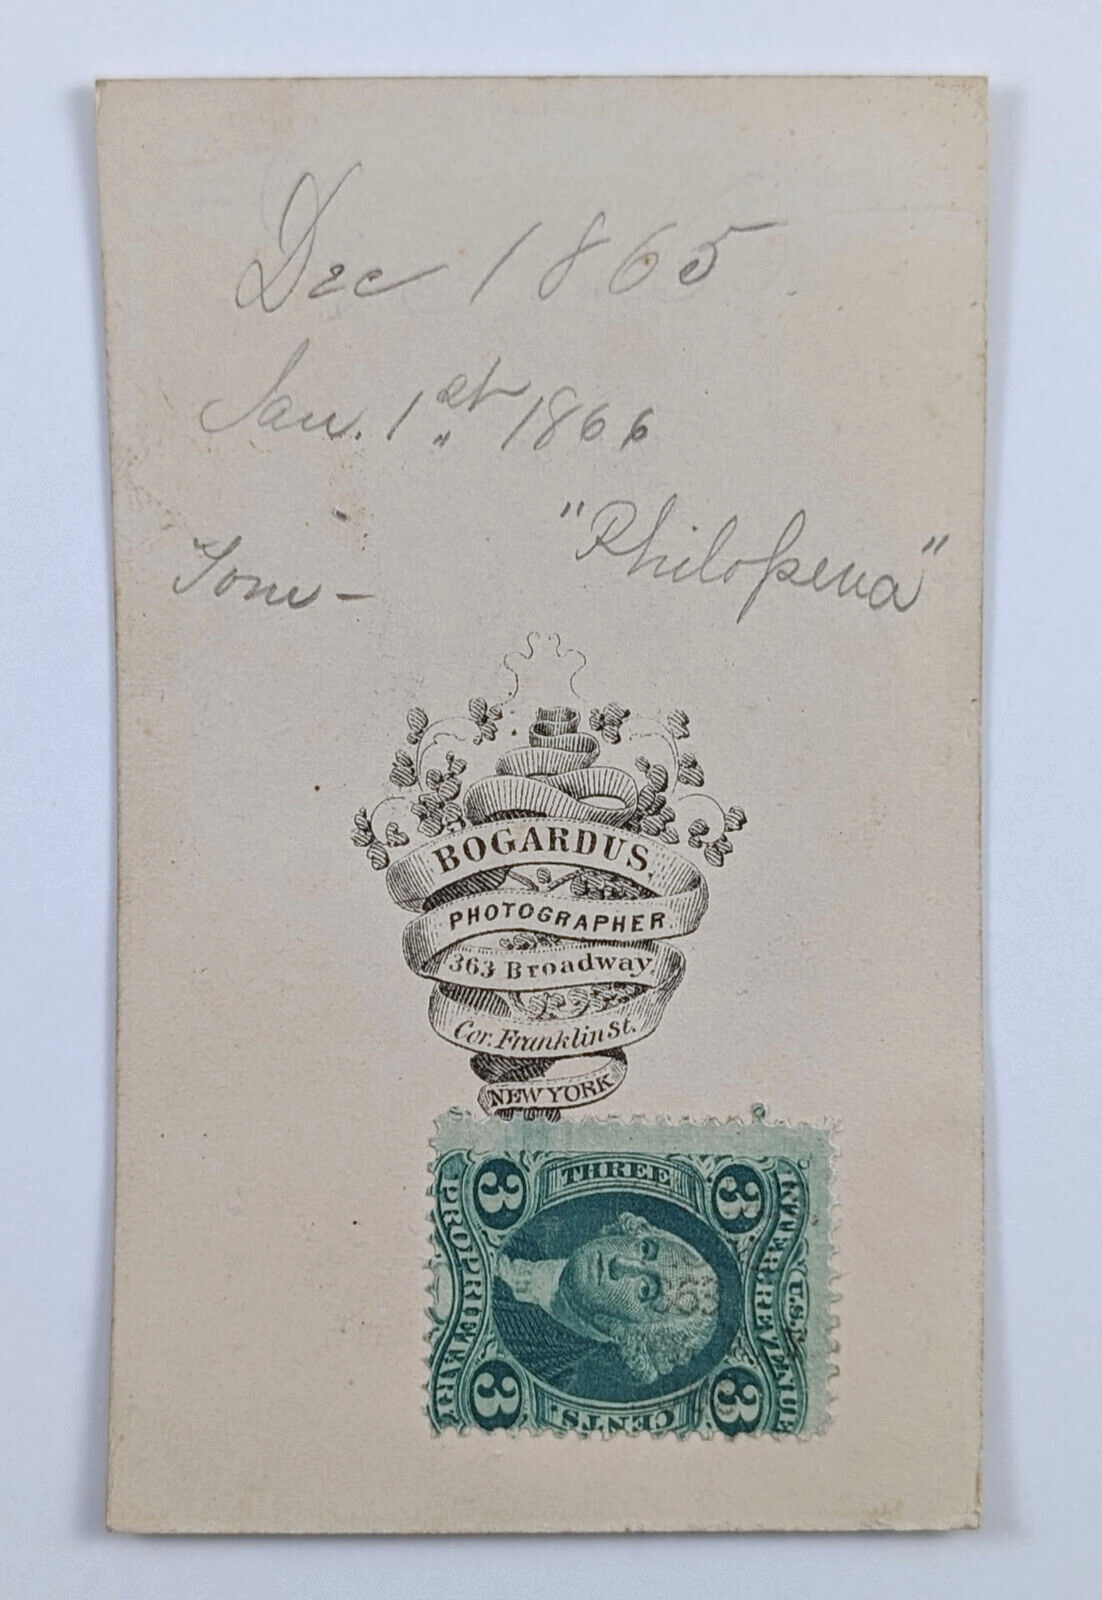 Dec 1865
Jan. 1st 1866
"Philopena"
Tom -
BOGARDUS,
PHOTOGRAPHER.
363 Broadway,
Cor. Franklin St.
NEW YORK
3 THREE 3
PROPRIETARY
U.S. INTER. REVENUE
3 CENTS. 3